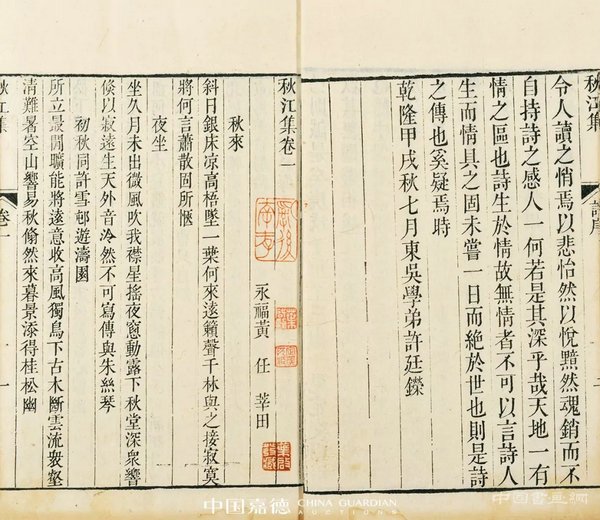 秋江集
詩序
二
令人讀之悄焉以悲怡然以悅黯然魂銷而不
自持詩之感人一何若是其深乎哉天地一有
情之區也詩生於情故無情者不可以言詩人
生而情具之固未嘗一日而絕於世也則是詩
之傳也奚疑焉時
乾隆甲戌秋七月東吳學弟許廷鑅
秋江集卷一
永福黃任莘田
秋來
斜日銀床凉高梧墜一葉何來遠籟聲千林與之接寂莫
將何言蕭散固所愜
夜坐
坐久月未出微風吹我襟星搖夜窓動露下秋堂深衆響
倐以寂遠生天外音泠然不可寫傳與朱絲琴
初秋同許雪邨遊濤園
所立最閒曠能將遠意收高風獨鳥下古木斷雲流衆壑
清難暑空山響易秋翛然來暮景添得桂松幽
秋江集
卷一
一
中国嘉德 CHINA GUARDIAN
AUCTIONS
中国書画網